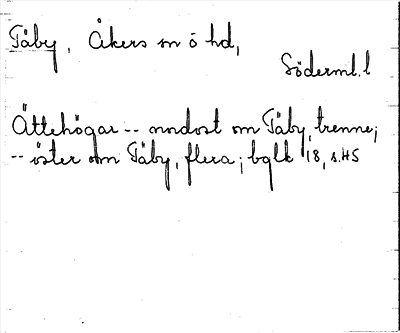 Täby, Åkers sn ö hd,
Söderml. l
Ättehögar -- nordost om Täby, trenne;
-- öster om Täby, flera; bglk 18, s. 45